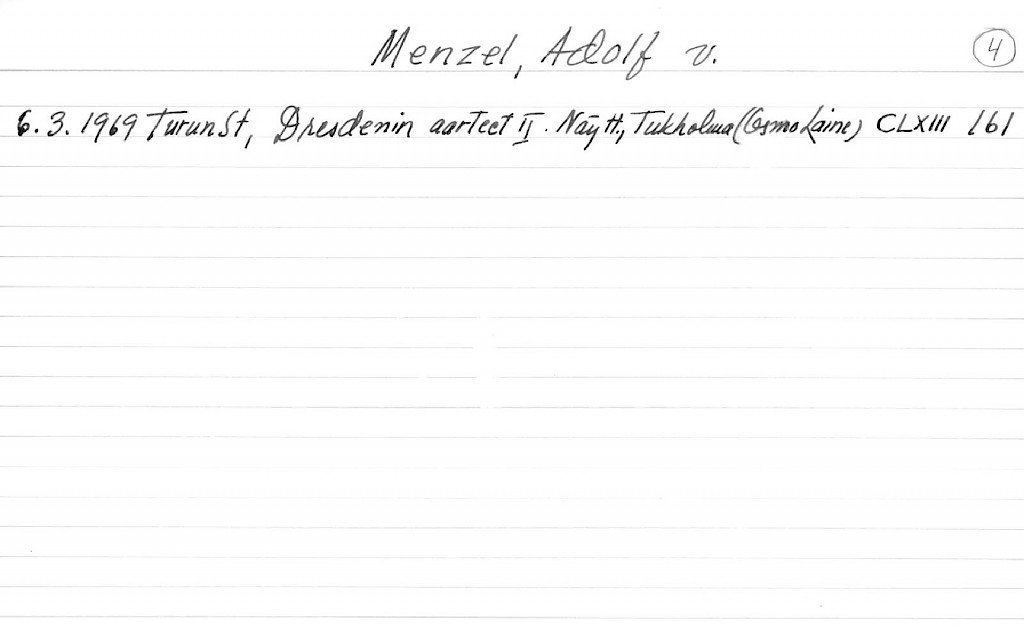 Menzel, Adolf v. 4
6.3.1969 Turun St, Dresdenin aarteet II. Näytt., Tukholma (Osmo Laine) CLXIII 161